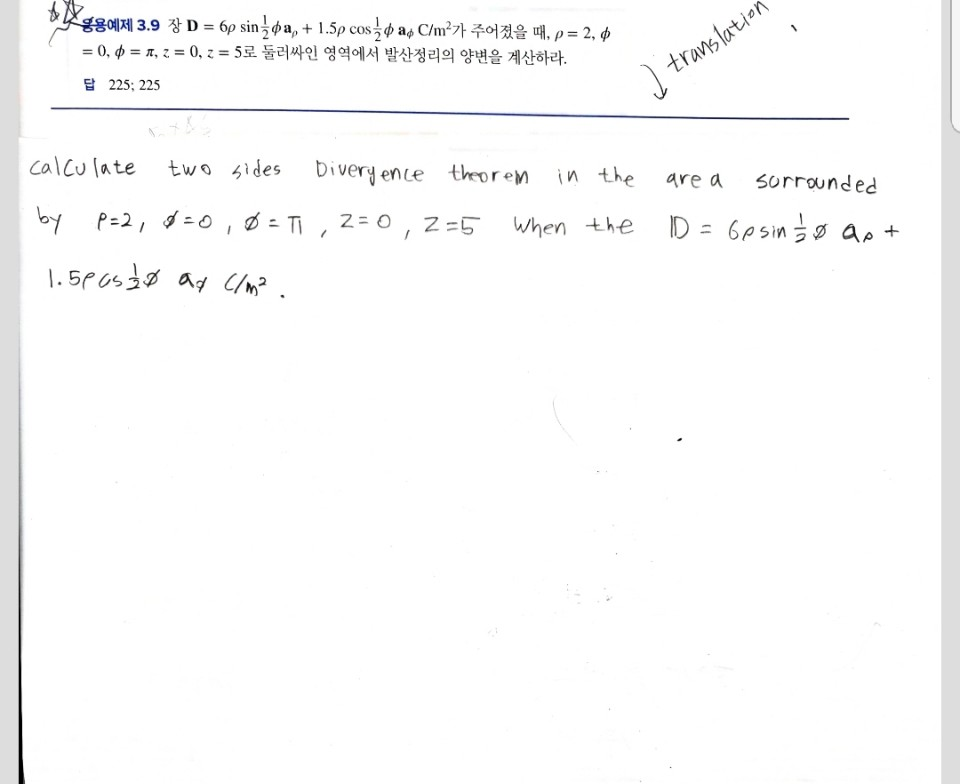 응용예제 3.9 장 D = 6ρ sin½ϕ aρ + 1.5ρ cos½ϕ aϕ C/m²가 주어졌을 때, ρ = 2, ϕ
= 0, ϕ = π, z = 0, z = 5로 둘러싸인 영역에서 발산정리의 양변을 계산하라.
답 225; 225
translation
calculate two sides Divergence theorem in the area sorrounded
by ρ=2, ϕ=0, ϕ=π, z=0, z=5 when the D = 6ρ sin½ϕ aρ +
1.5ρ cos½ϕ aϕ C/m².